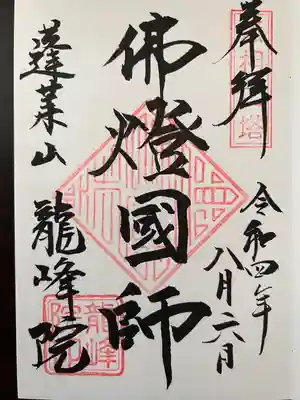 奉拝
令和四年
八月六日
佛燈國師
蓬莱山
龍峰院
龍峰
院印